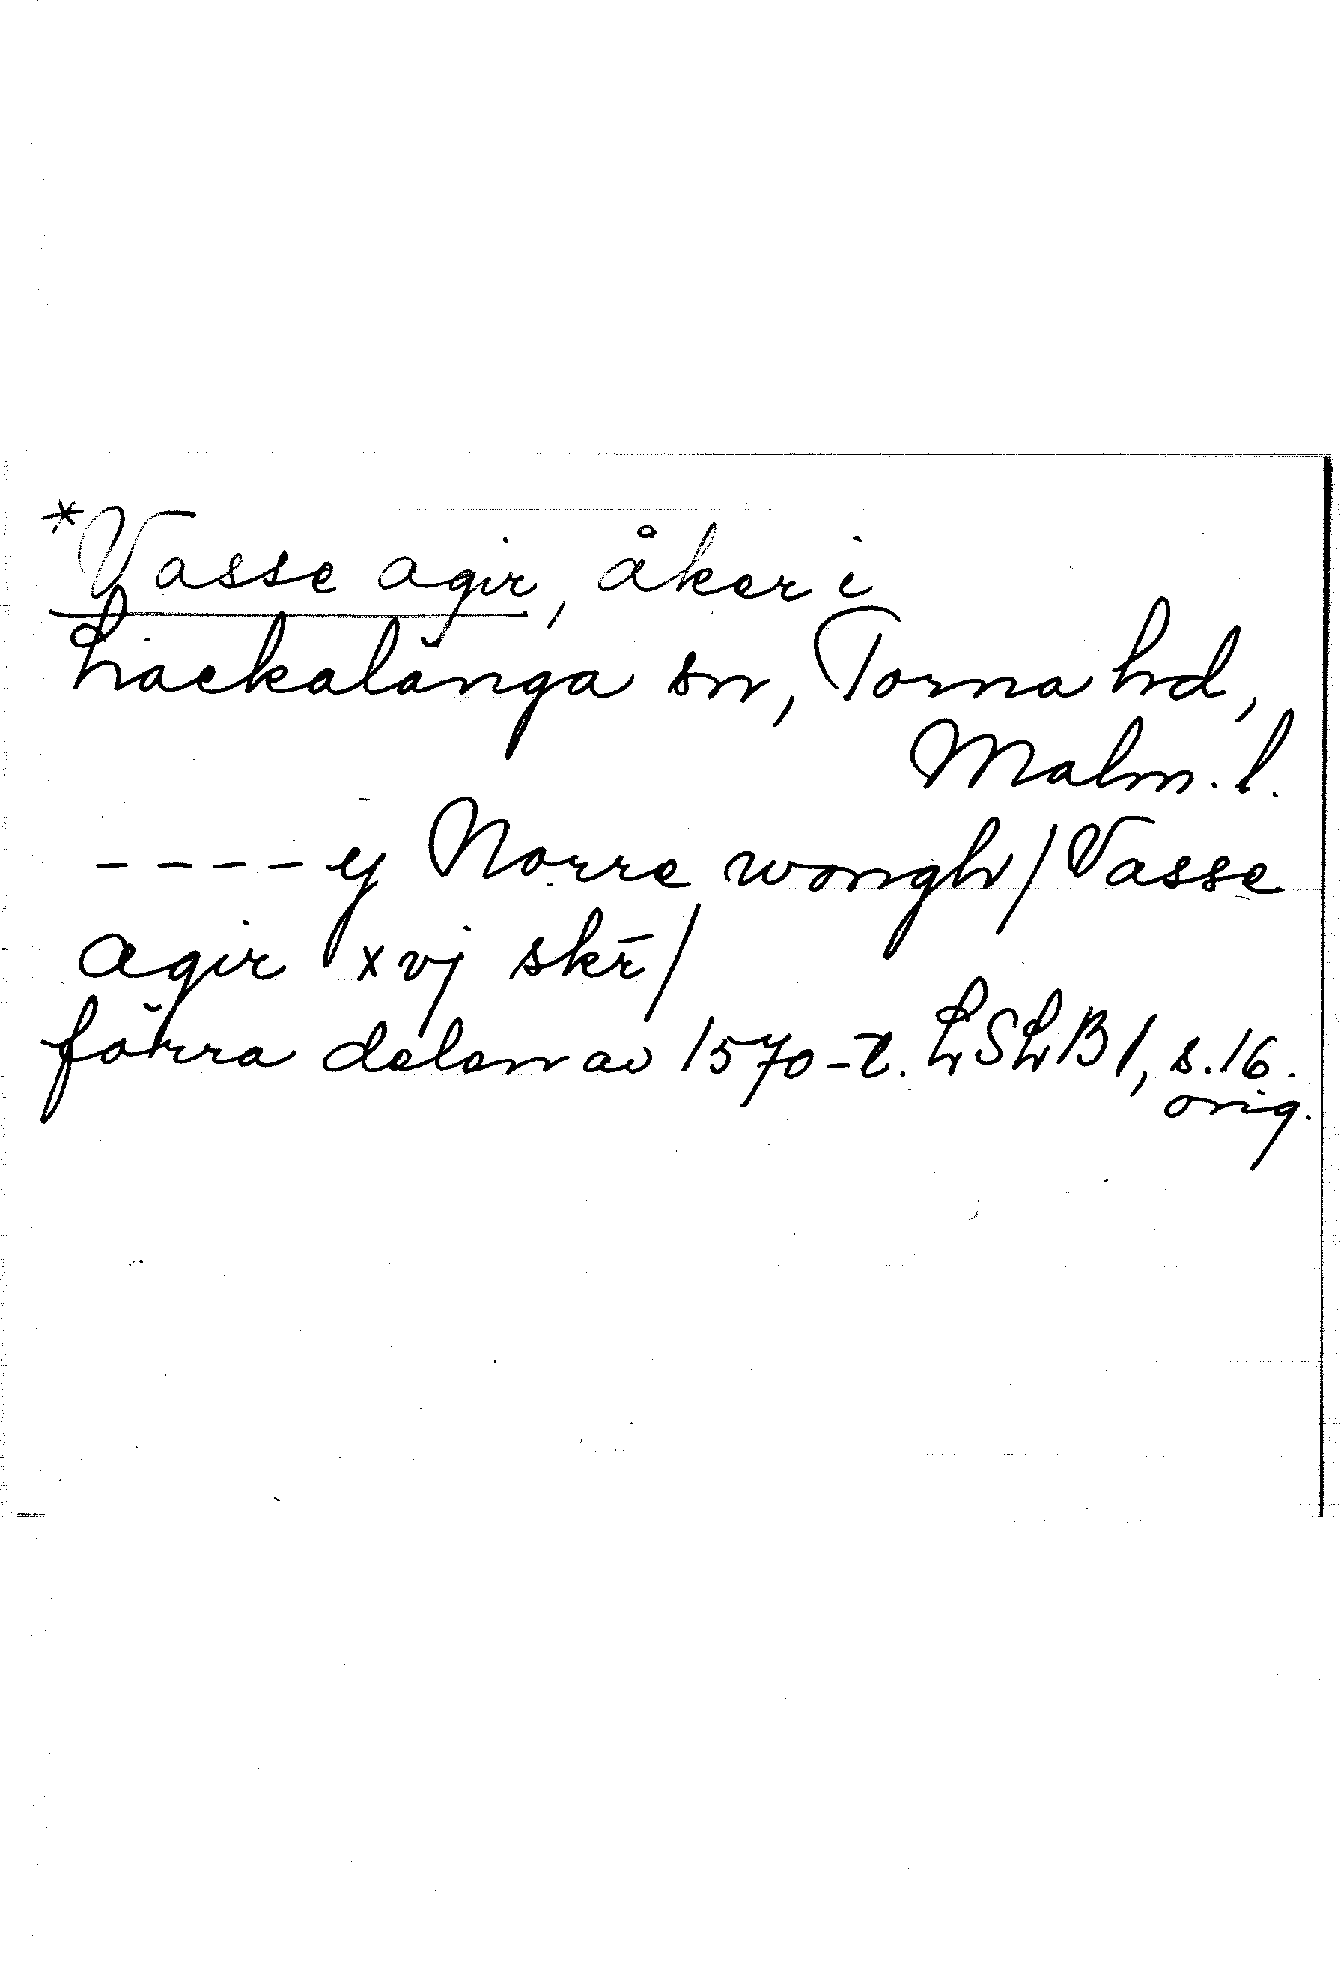 *Vasse agir, åker i
Hackalänga sn, Torna hd,
Malm. l.
----y Norre wongh/Vasse
agir xvj skr̄/
förra delen av 1570-t. LSLB1, s.16.
orig.